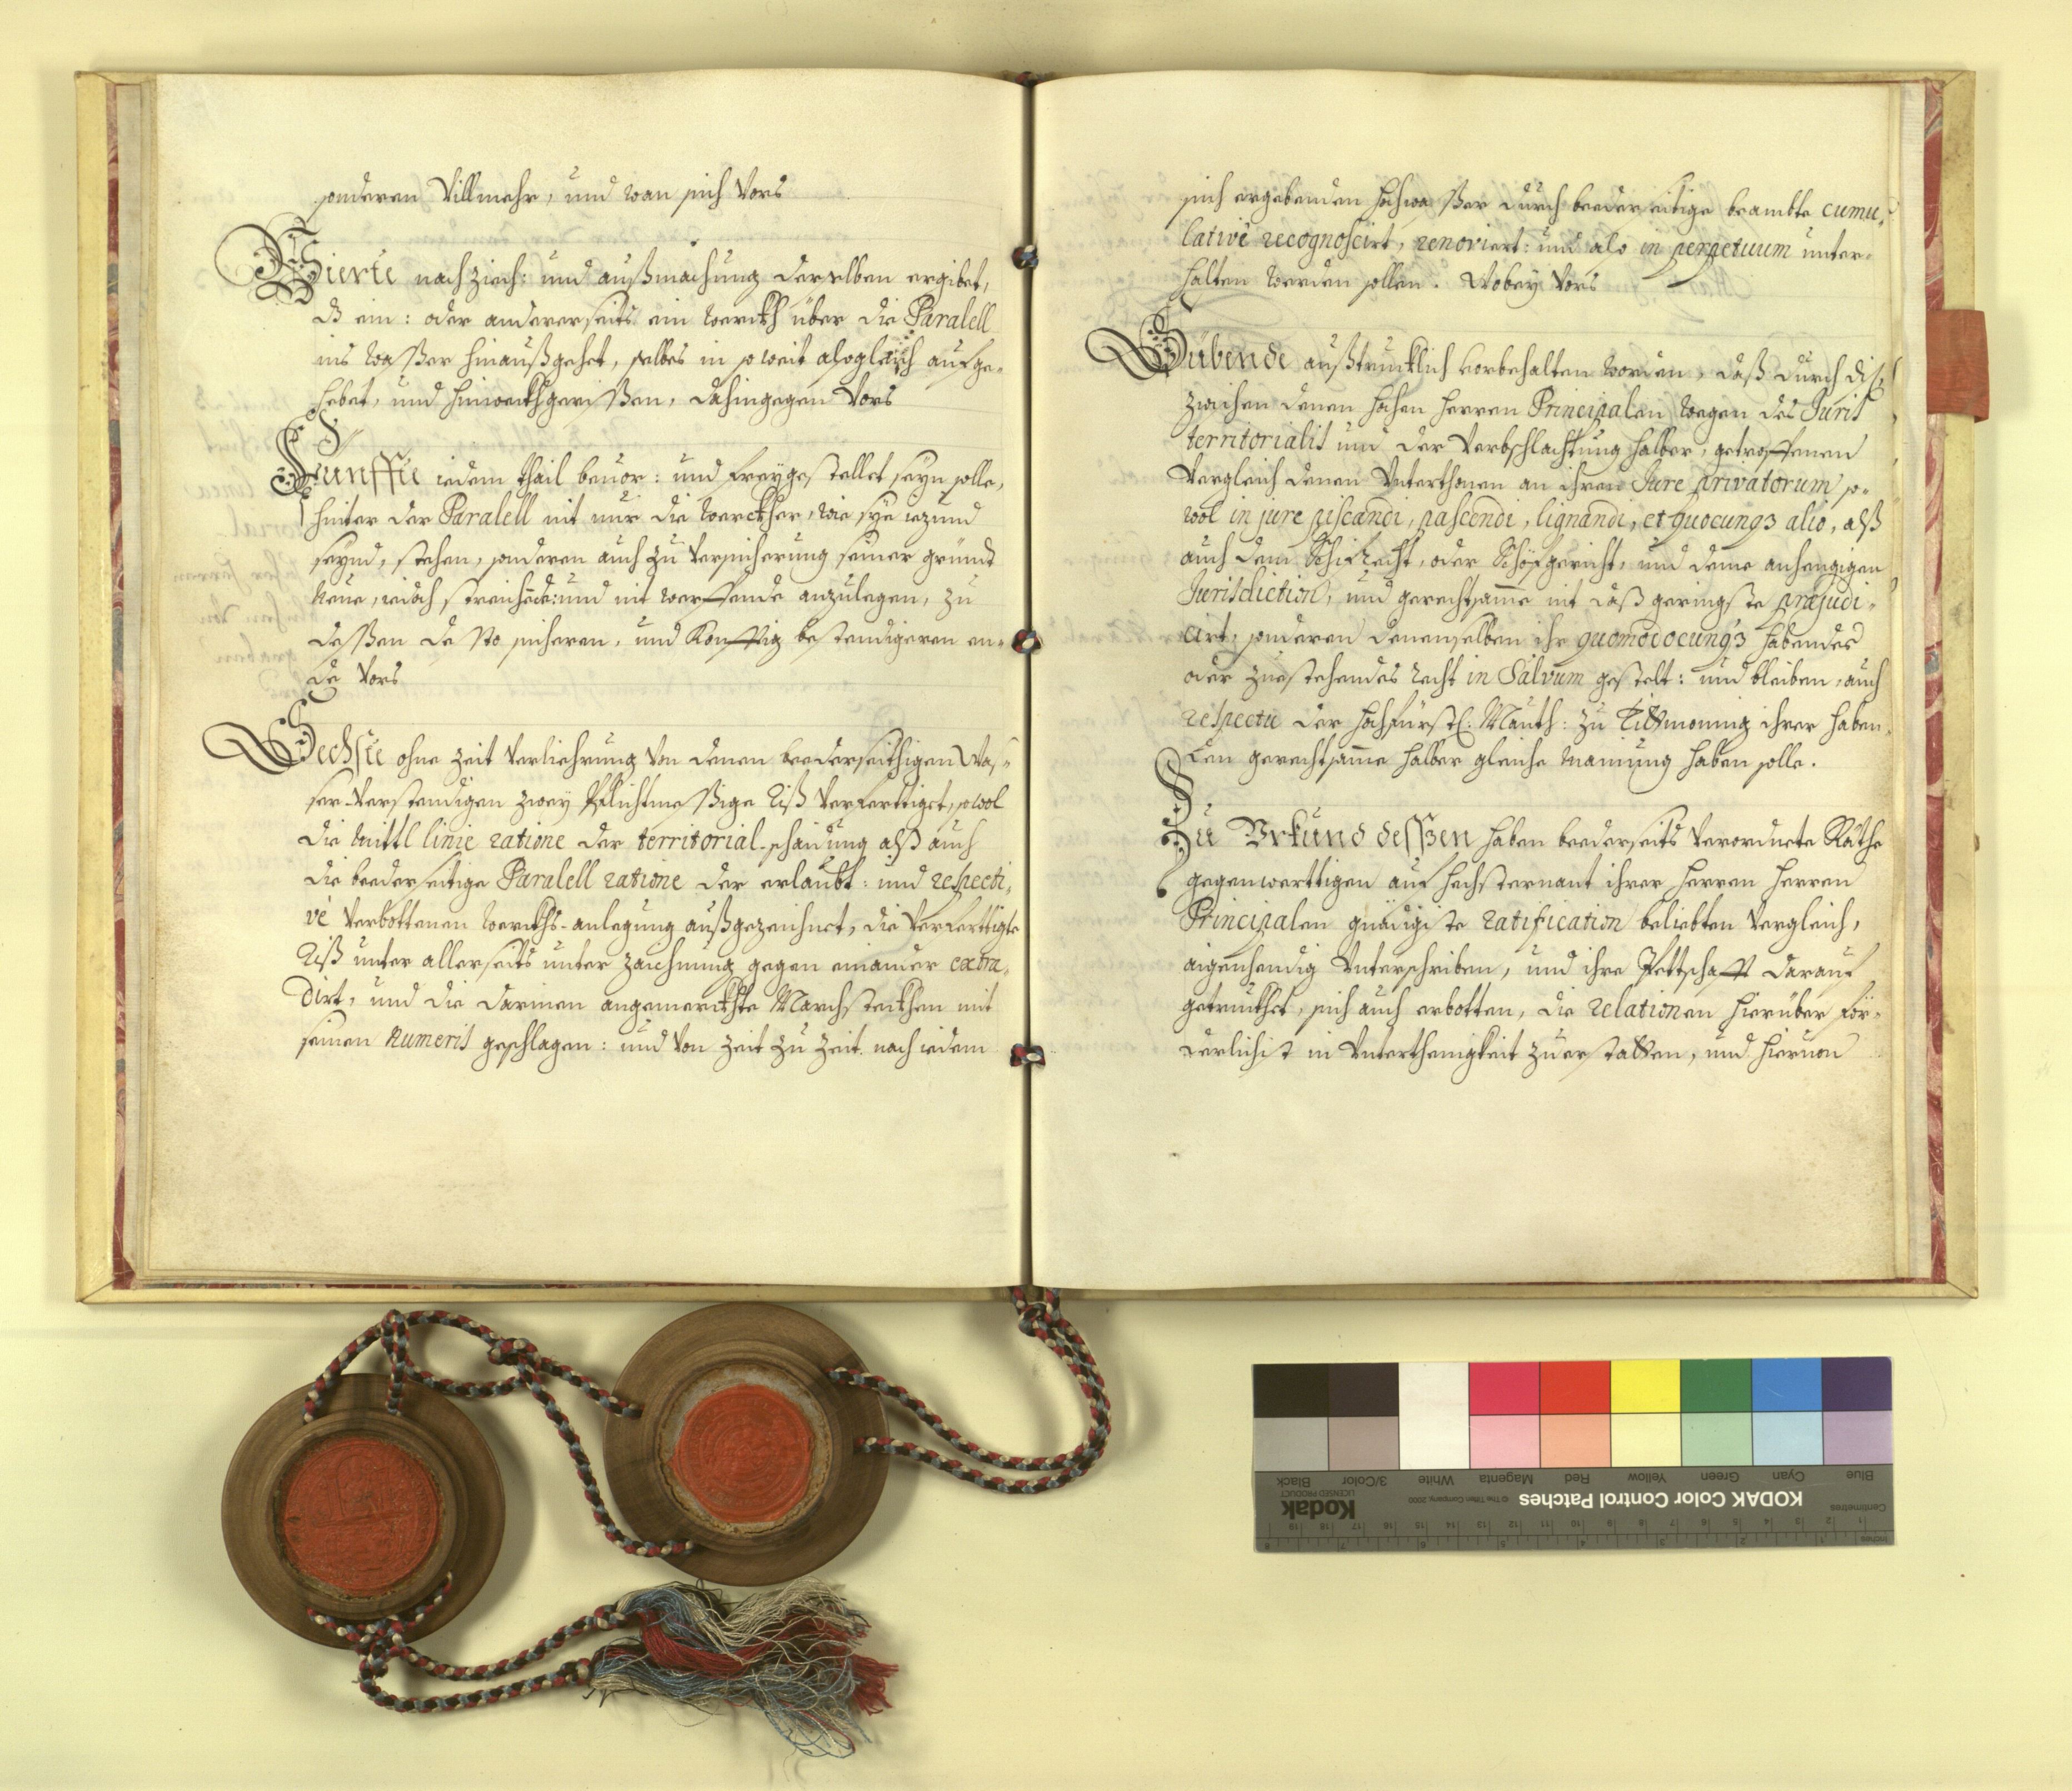 sonderen Villmehr, und wan sich Vors
Vierte nach zieh: und außmachung derselben ergibet,
dz ein: oder andererseits ein Werckh über die Paralell
ins Wasßer hinaußgehet, selbes in so weit alsogleich aufge-
hebet, und hinweckhgerisßen, dahingegen Vors
Fünffte iedem thail beuor: und freygestellet seyn solle,
hinter der Paralell nit nur die Werckher, wie sye iezund
seynd, stehen, sonderen auch zu Versicherung seiner gründt
Neue, iedoch streichende: und nit werffende anzulegen, zu
desßen desto sicheren, und Konfftig bestendigeren en-
de Vors
Sechste ohne Zeit Verliehrung Von denen beederseithigen Was-
ser-Verstendigen zwey Pflichtmesßige Riß Verferttiget, sowol
die Mittl linie ratione der territorial-schaidung alß auch
die beederseitige Paralell ratione der erlaubt: und respecti-
vè Verbottenen Werckhs-anlegung außgezeichnet, die Verferttigte
Riß unter allerseits unterzaichnung gegen einander extra-
dirt, und die darinen angemerckhte Marchsteckhen mit
seinen Numeris geschlagen: und Von Zeit zu Zeit nach iedem
sich ergebenden hochwasßer durch beederseitige beambte cumu-
lativè recognoscirt, renoviert: und also in perpetuum unter-
halten werden sollen. Wobey Vors
Sübende außtrucklich Vorbehalten worden, daß durch dis,
zwischen denen hohen Herren Principalen wegen des Juris
territorialis und der Verbschlachtung halber, getroffenen
Vergleich denen Unterthonen an ihren Jure privatorum so-
wol in jure piscandi, pascendi, lignandi, et quocunq3 alio, alß
auch dem Schifrecht, oder Schöfgericht, und deme anhengigen
Jurisdiction, und gerechtsamme nit daß geringste præjudi-
cirt, sonderen denenselben ihr quomodocunq3 habendes
oder zuestehendes recht in Salvum gestelt: und bleiben, auch
respectu der hochfürstl. Mauth: zu Tittmoning ihrer haben-
den gerechtsamme halber gleiche Mainung haben solle.
Zu Urkund desßen haben beederseits Verordnete Räthe
gegenwerttigen auf hochsternant ihrer Herren Herren
Principalen gnädigiste ratification beliebten Vergleich,
aigenhendig Unterschriben, und ihre Pettschafft darauf
getruckhet, sich auch erbotten, die relationen hierüber för-
derlichist in Unterthenigkeit zuerstatten, und hieruon
KODAK Color Control Patches
© The Tiffen Company, 2000
Kodak
LICENSED PRODUCT
Blue Cyan Green Yellow Red Magenta White 3/Color Black
Centimetres
Inches